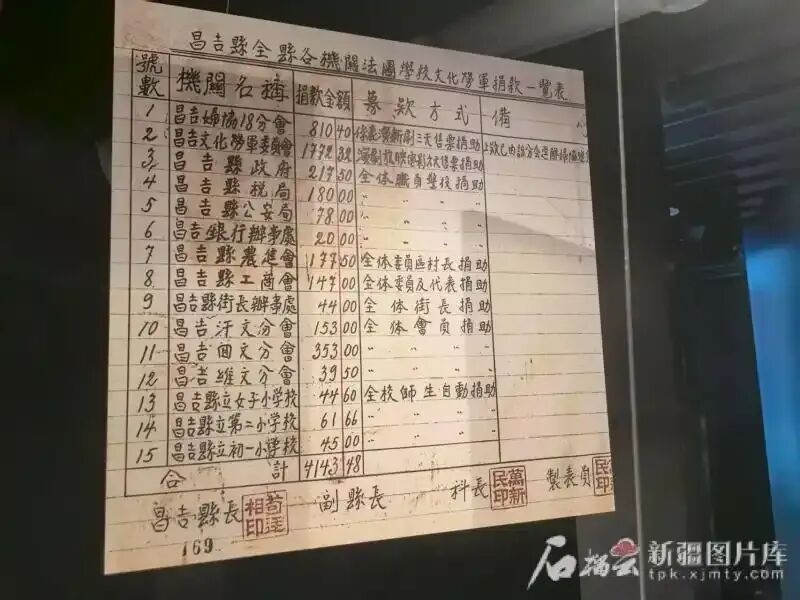 昌吉縣全縣各機關法團學校文化勞軍捐款一覽表
號數 機關名稱 捐款金額 募款方式 備
1 昌吉婦協18分會 810 40 演新劇三天售票捐助
2 昌吉文化勞軍委員會 1772 32 演劇放映電影六天售票捐助
3 昌吉縣政府 217 50 全体職員警役捐助
4 昌吉縣稅局 180 00 〃 〃 〃
5 昌吉縣公安局 78 00 〃 〃 〃
6 昌吉銀行辦事處 20 00 〃 〃 〃
7 昌吉縣農進會 177 50 全体委員區村長捐助
8 昌吉縣工商會 147 00 全体委員及代表捐助
9 昌吉縣街長辦事處 44 00 全体街長捐助
10 昌吉汗文分會 153 00 全体會員捐助
11 昌吉回文分會 353 00 〃 〃 〃
12 昌吉維文分會 39 50 〃 〃 〃
13 昌吉縣立女子小學校 44 60 全校師生自動捐助
14 昌吉縣立第二小學校 61 66 〃 〃 〃
15 昌吉縣立初一小學校 45 00 〃 〃 〃
合計 4143 48
昌吉縣長 副縣長 科長 萬新民印 製表員
169
石榴云 新疆图片库
tpk.xjmty.com